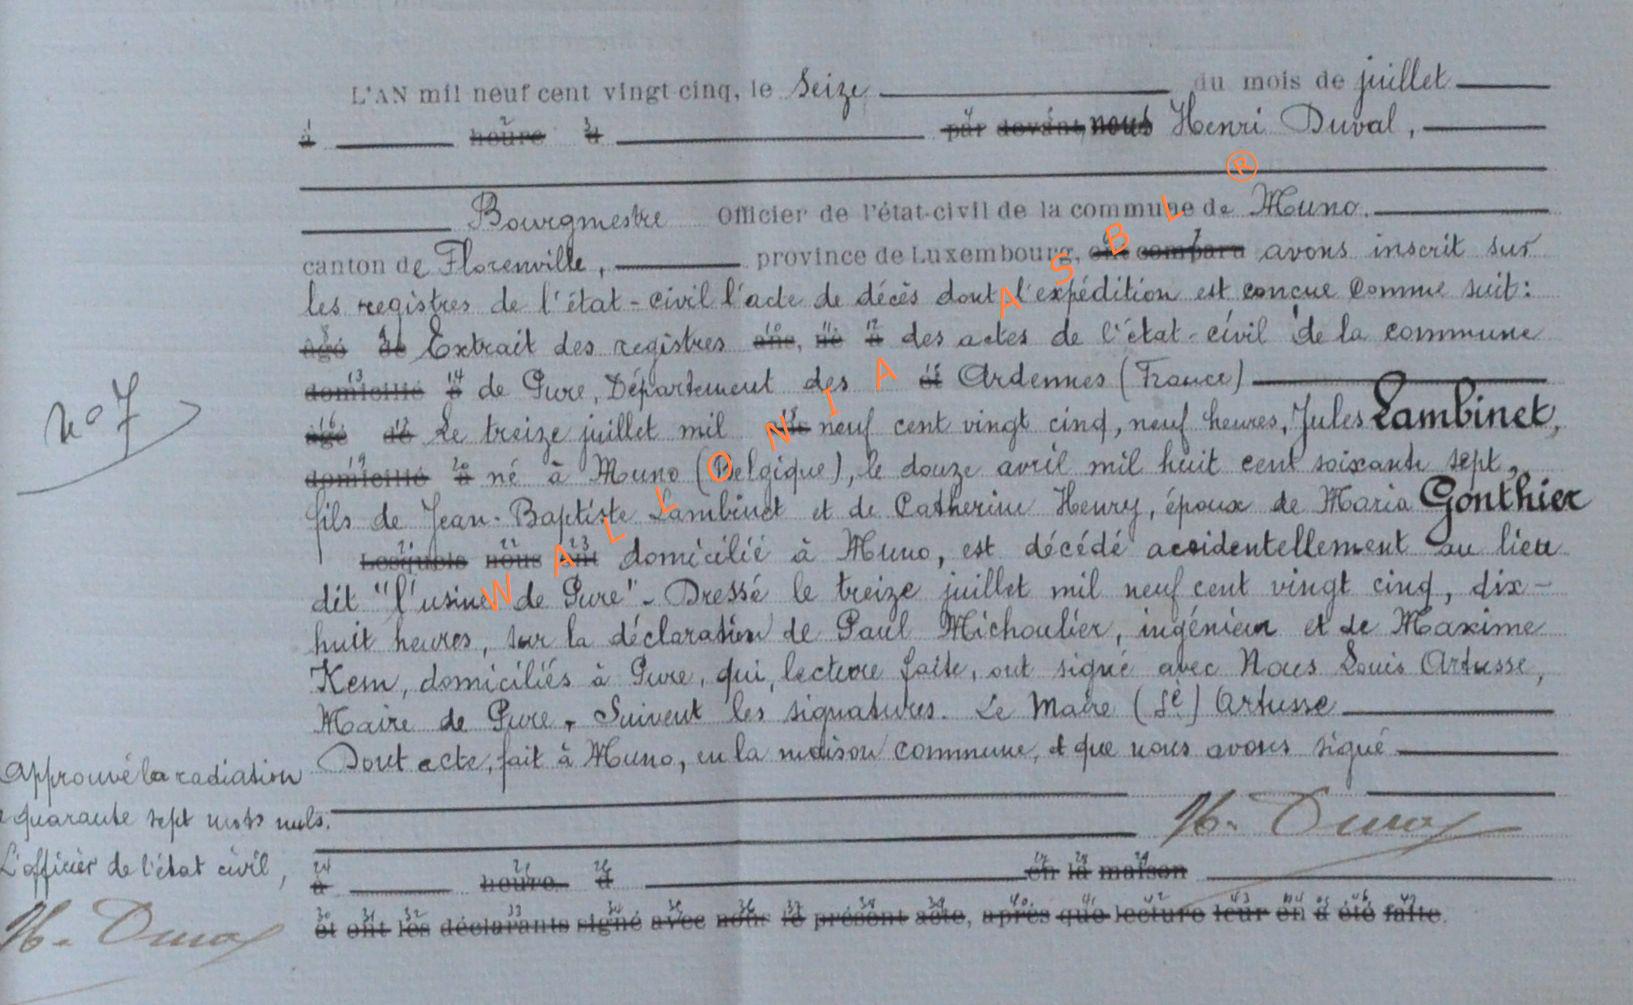 L'AN mil neuf cent vingt cinq, le Seize du mois de juillet
à heure à par devant nous Henri Duval,
Bourgmestre Officier de l'état-civil de la commune de Muno.
canton de Florenville, province de Luxembourg, ont comparu avons inscrit sur
les registres de l'état-civil l'acte de décès dont l'expédition est conçue comme suit:
âgé de Extrait des registres ans, né à des actes de l'état-civil de la commune
domicilié à de Pure, Département des et Ardennes (France)
âgé de Le treize juillet mil neuf cent vingt cinq, neuf heures, Jules Lambinet,
domicilié à né à Muno (Belgique), le douze avril mil huit cent soixante sept,
fils de Jean-Baptiste Lambinet et de Catherine Henry, époux de Maria Gonthier
Lesquels nous ont domicilié à Muno, est décédé accidentellement au lieu
dit "l'usine de Pure"- Dressé le treize juillet mil neuf cent vingt cinq, dix-
huit heures, sur la déclaration de Paul Michoulier, ingénieur et de Maxime
Kem, domiciliés à Pure, qui, lecture faite, ont signé avec Nous Louis Artusse,
Maire de Pure. Suivent les signatures. Le Maire (sé) Artusse
Dont acte, fait à Muno, en la maison commune, et que nous avons signé
H. Duval
à heure à en la maison
et ont les déclarants signé avec nous le présent acte, après que lecture leur en a été faite.
n° 7
Approuvé la radiation
quarante sept mots nuls.
L'officier de l'état civil,
H. Duval
WALLONIA ASBL ®